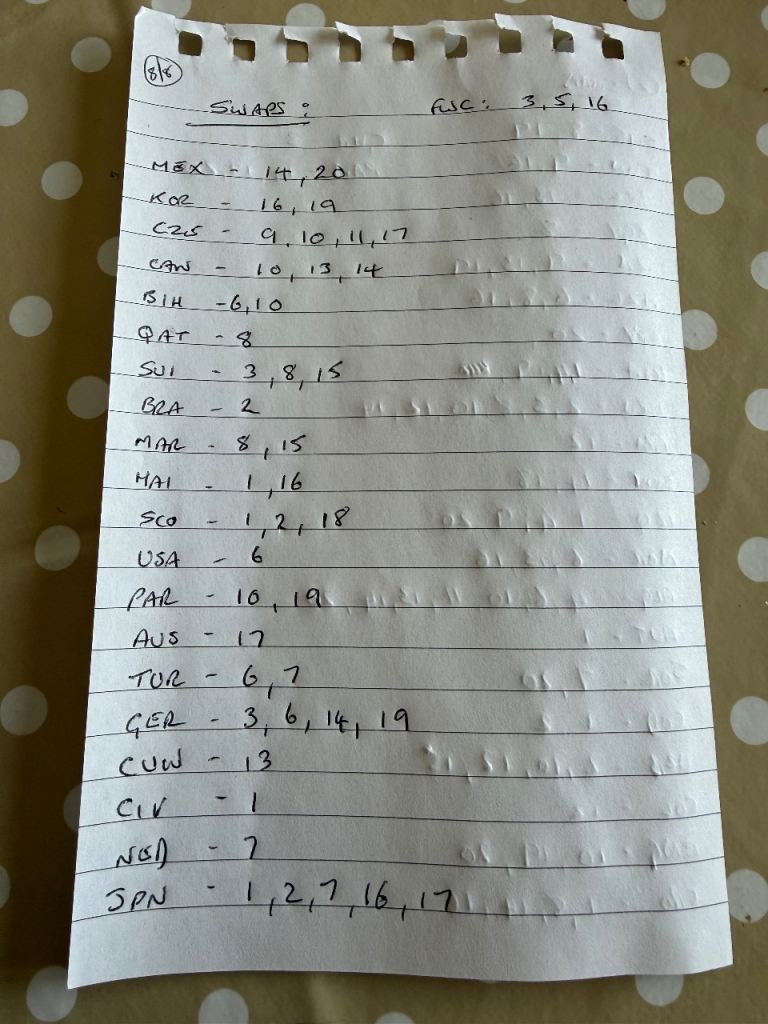 8/8
SWAPS: FWC: 3, 5, 16
MEX - 14, 20
KOR - 16, 19
CZE - 9, 10, 11, 17
CAN - 10, 13, 14
BIH - 6, 10
QAT - 8
SUI - 3, 8, 15
BRA - 2
MAR - 8, 15
HAI - 1, 16
SCO - 1, 2, 18
USA - 6
PAR - 10, 19
AUS - 17
TUR - 6, 7
GER - 3, 6, 14, 19
CUW - 13
CIV - 1
NED - 7
JPN - 1, 2, 7, 16, 17